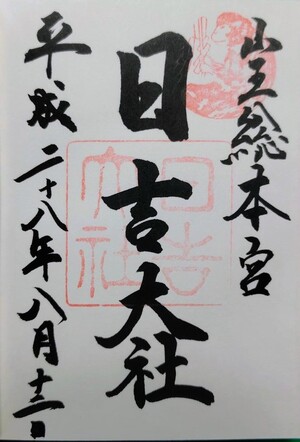 山王総本宮
日吉大社
平成二十八年八月十三日
日吉大社